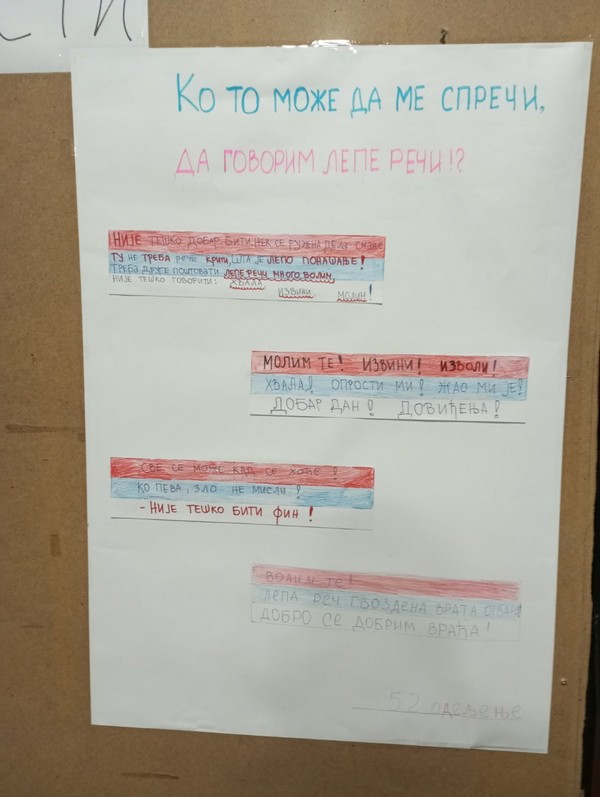 СТИ
КО ТО МОЖЕ ДА МЕ СПРЕЧИ,
ДА ГОВОРИМ ЛЕПЕ РЕЧИ!?
НИЈЕ ТЕШКО ДОБАР БИТИ, НЕК СЕ РУЖНА ДЕЛА
ТУ НЕ ТРЕБА НИШТА КРИТИ, ШТА ЈЕ ЛЕПО ПОНАШАЊЕ!
ТРЕБА ДРУГЕ ПОШТОВАТИ ЛЕПЕ РЕЧИ МНОГО ВОЛИМ,
НИЈЕ ТЕШКО ГОВОРИТИ: ХВАЛА
ИЗВИНИ МОЛИМ!
МОЛИМ ТЕ! ИЗВИНИ! ИЗВОЛИ!
ХВАЛА! ОПРОСТИ МИ! ЖАО МИ ЈЕ!
ДОБАР ДАН! ДОВИЂЕЊА!
СВЕ СЕ МОЖЕ КАД СЕ ХОЋЕ!
КО ПЕВА, ЗЛО НЕ МИСЛИ!
- НИЈЕ ТЕШКО БИТИ ФИН!
ВОЛИМ ТЕ!
ЛЕПА РЕЧ ГВОЗДЕНА ВРАТА ОТВАРА!
ДОБРО СЕ ДОБРИМ ВРАЋА!
52 одељење